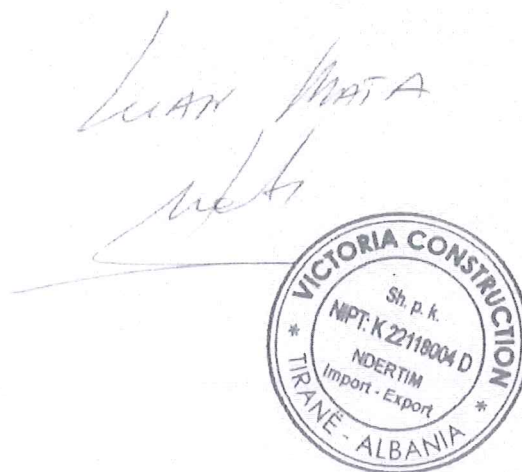 LUAN MATA
VICTORIA CONSTRUCTION
Sh. p. k.
NIPT: K 22118004 D
NDERTIM
Import - Export
* TIRANË - ALBANIA *